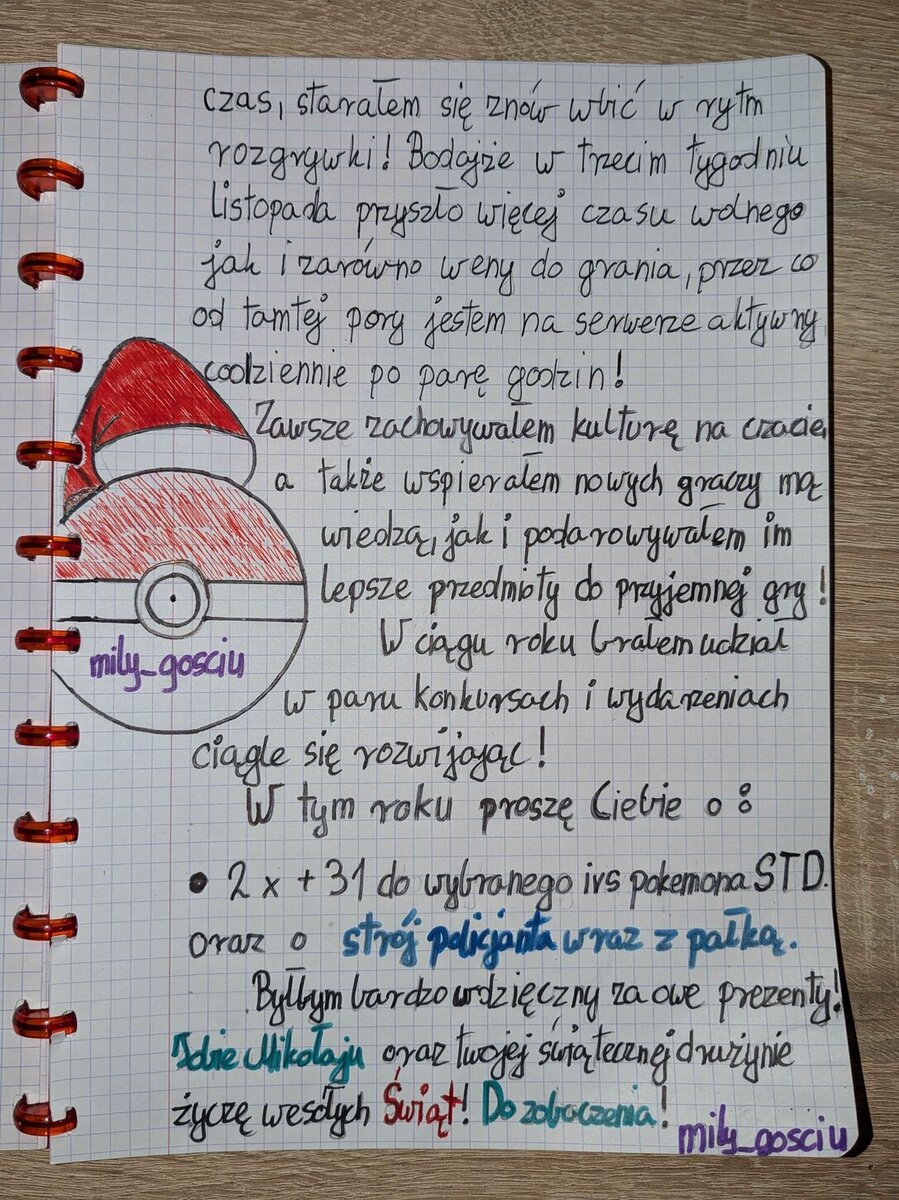 czas, starałem się znów wbić w rytm
rozgrywki! Bodajże w trzecim tygodniu
listopada przyszło więcej czasu wolnego
jak i zarówno weny do grania, przez co
od tamtej pory jestem na serwerze aktywny
codziennie po parę godzin!
Zawsze zachowywałem kulturę na czacie,
a także wspierałem nowych graczy mą
wiedzą, jak i podarowywałem im
lepsze przedmioty do przyjemnej gry!
W ciągu roku brałem udział
mily_gosciu
w paru konkursach i wydarzeniach
ciągle się rozwijając!
W tym roku proszę Ciebie o:
• 2 x +31 do wybranego ivs pokemona STD.
oraz o strój policjanta wraz z pałką.
Byłbym bardzo wdzięczny za owe prezenty!
Tobie Mikołaju oraz twojej świątecznej drużynie
życzę wesołych Świąt! Do zobaczenia!
mily_gosciu